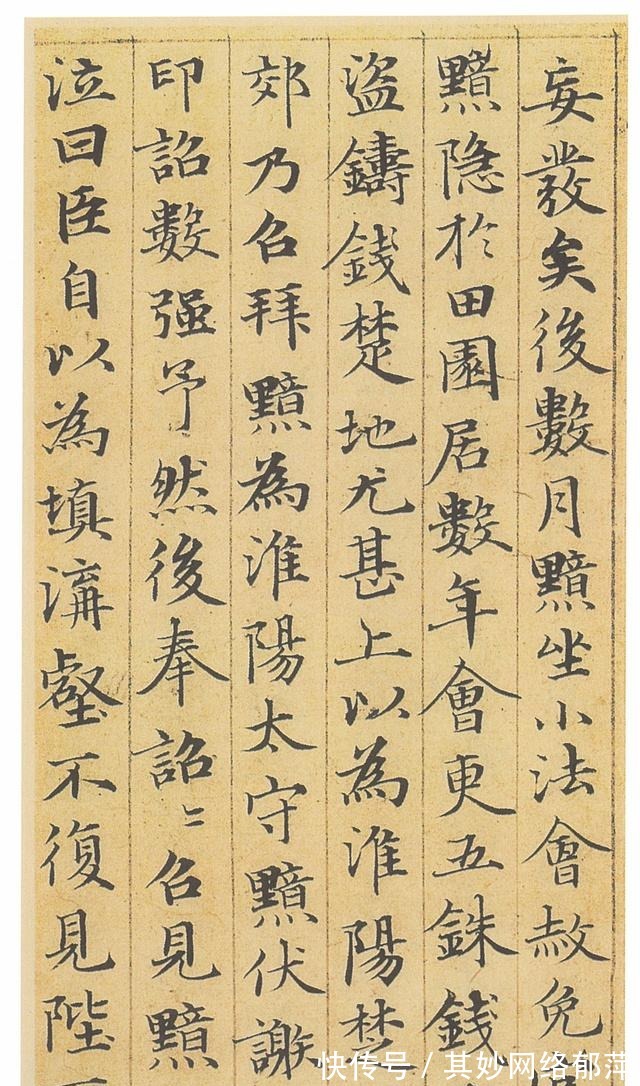 妄發矣後數月黯坐小法會赦免
黯隐於田園居數年會更五銖錢
盜鑄錢楚地尤甚上以為淮陽楚
郊乃召拜黯為淮陽太守黯伏謝
印詔數强予然後奉詔〻召見黯
泣曰臣自以為填溝壑不復見陛
快传号 / 其妙网络郁萍